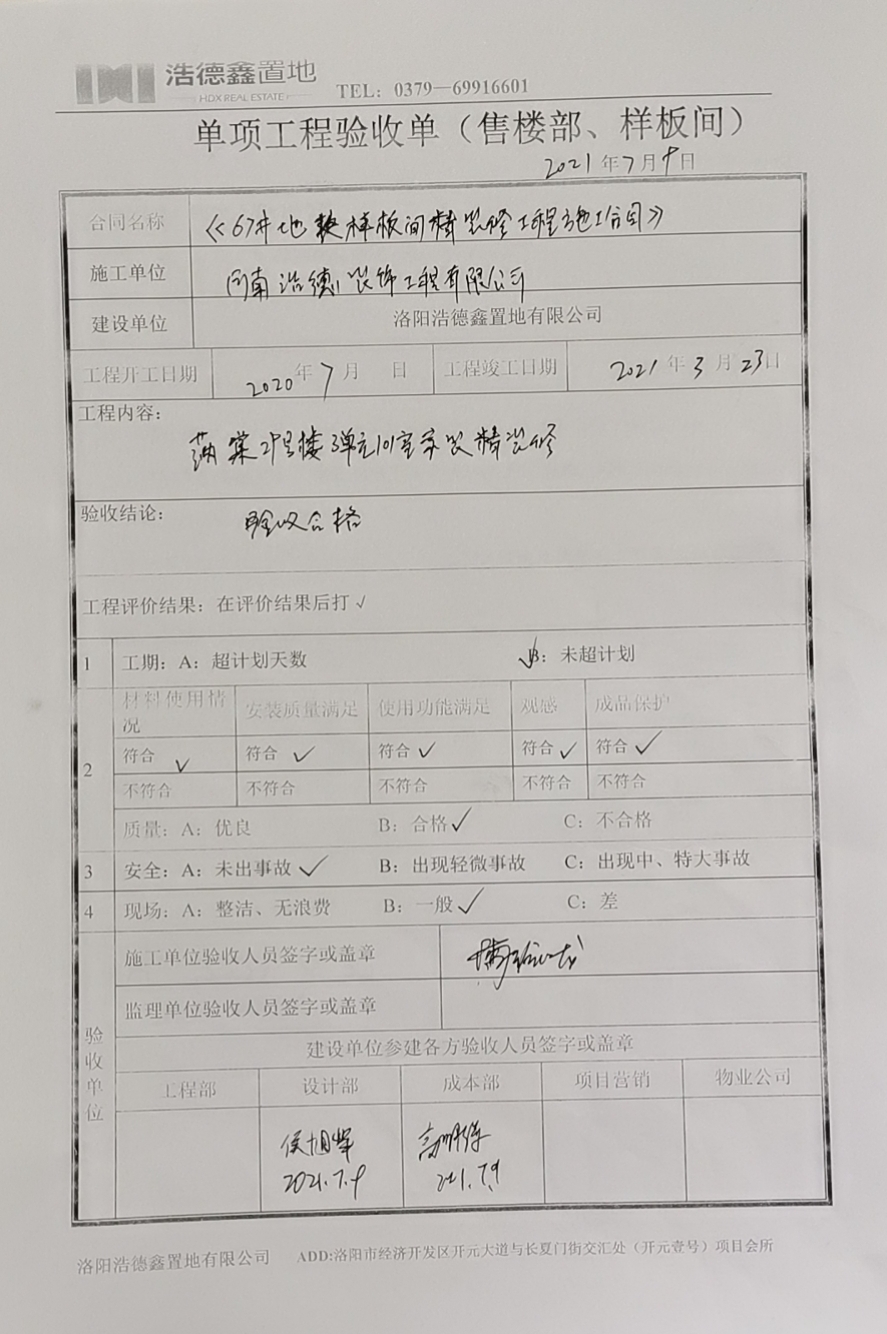 浩德鑫置地
HDX REAL ESTATE
TEL: 0379—69916601
单项工程验收单（售楼部、样板间）
2021年7月9日
合同名称 《67#地块样板间精装修工程施工合同》
施工单位 河南浩德装饰工程有限公司
建设单位 洛阳浩德鑫置地有限公司
工程开工日期 2020年7月 日 工程竣工日期 2021年3月23日
工程内容：
棠2#号楼3单元101室 精装修
验收结论： 验收合格
工程评价结果：在评价结果后打√
1 工期：A：超计划天数 √B：未超计划
2 材料使用情况 安装质量满足 使用功能满足 观感 成品保护
符合√ 符合√ 符合√ 符合√ 符合√
不符合 不符合 不符合 不符合 不符合
质量：A：优良 B：合格√ C：不合格
3 安全：A：未出事故√ B：出现轻微事故 C：出现中、特大事故
4 现场：A：整洁、无浪费 B：一般√ C：差
验收单位
施工单位验收人员签字或盖章
监理单位验收人员签字或盖章
建设单位参建各方验收人员签字或盖章
工程部 设计部 成本部 项目营销 物业公司
侯旭辉
2021.7.9 2021.7.9
洛阳浩德鑫置地有限公司 ADD:洛阳市经济开发区开元大道与长夏门街交汇处（开元壹号）项目会所